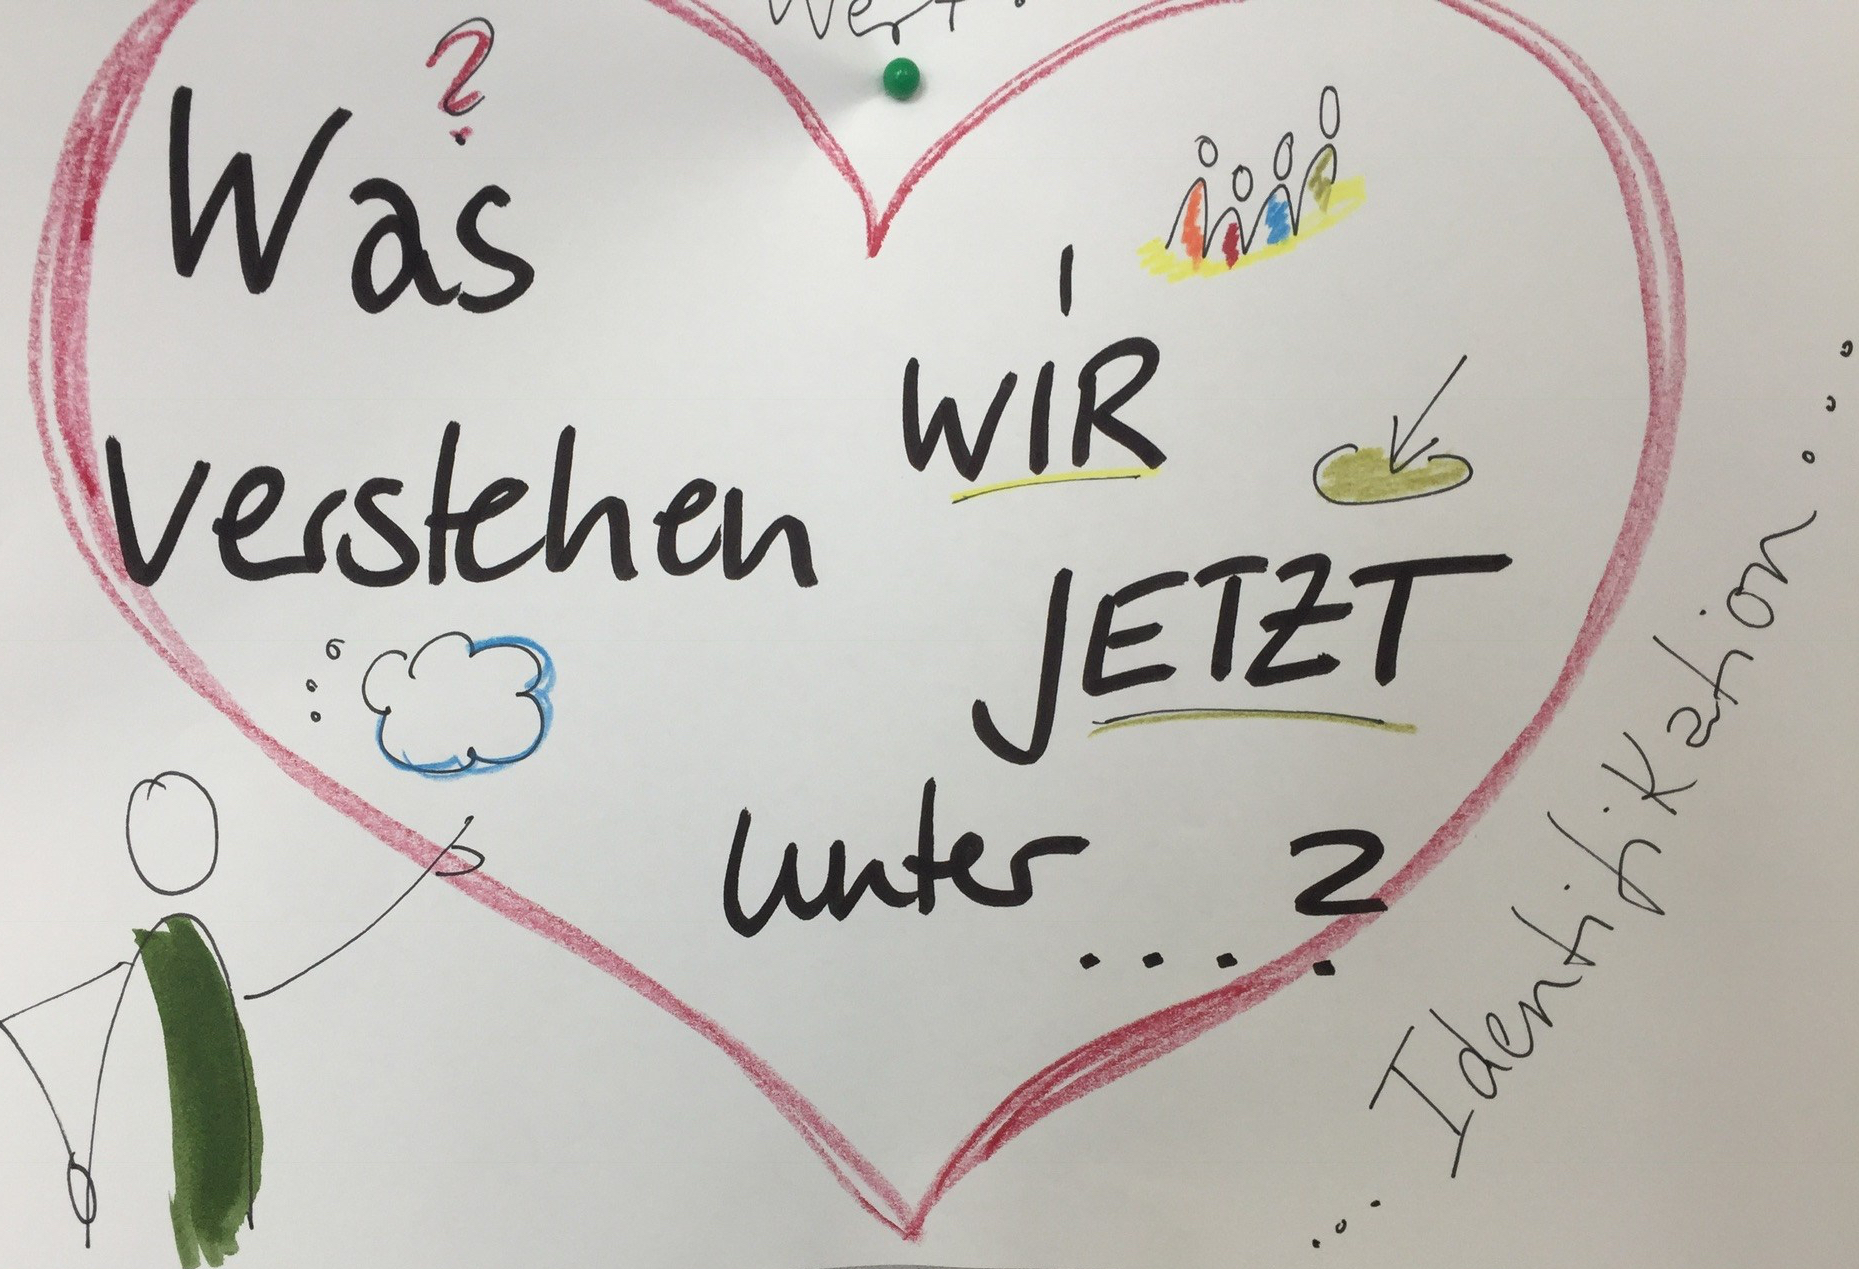 Wert
?
Was
verstehen
WIR
JETZT
unter .... ?
... Identifikation ...